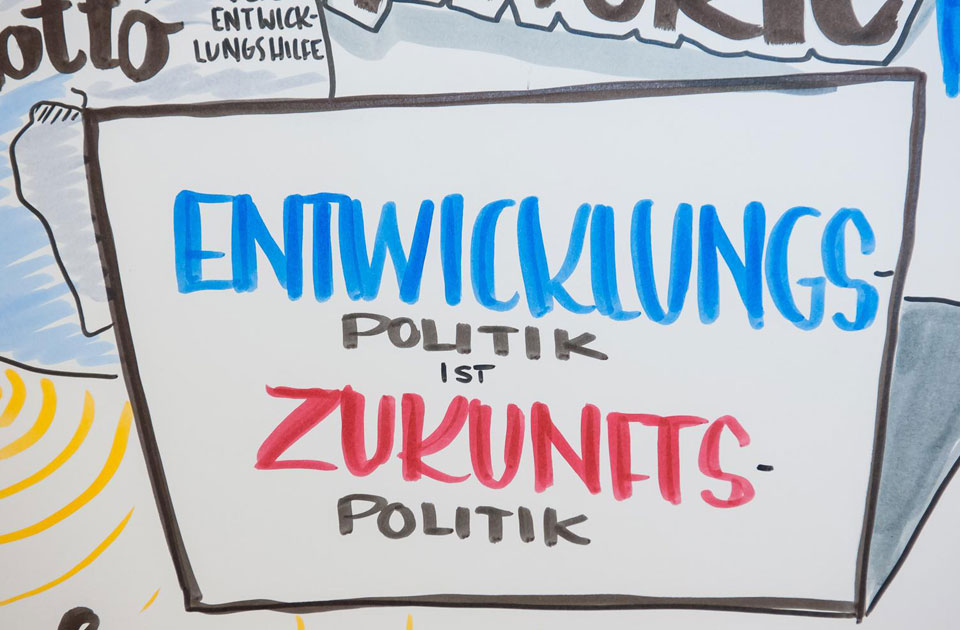 ENTWICK-
LUNGSHILFE
ENTWICKLUNGS-
POLITIK
IST
ZUKUNFTS-
POLITIK